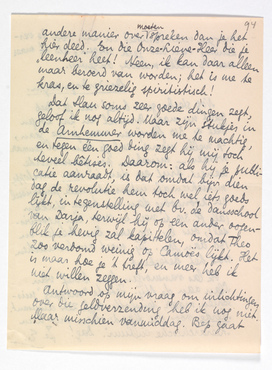 94
moeten
andere manier over spreken dan je het
hier deed. En die Onze-Lieve-Heer die je
leenheer heet! Neen, ik kan daar alleen
maar beroerd van worden; het is me te
kras, en te griezelig spiritistisch!
Dat Han soms zeer goede dingen zegt,
geloof ik nog altijd. Maar zijn stukjes, in
de Arnhemmer worden me te machtig
en tegen één goed ding zegt hij mij toch
teveel bêtises. Daarom: als hij je publi-
catie aanraadt, is dat omdat bijv. dien
dag de revolutie hem toch wel iets goeds
lijkt, in tegenstelling met bv. de dansschool
van Darja, terwijl hij op een ander oogen-
blik je hevig zal kapitelen, omdat Theo
zoo verdomd weinig op Camoës lijkt. Het
is maar hoe je 't treft, en meer heb ik
niet willen zeggen.
Antwoord op mijn vraag om inlichtingen
over die geldverzending heb ik nog niet,
maar misschien vanmiddag. Bep gaat